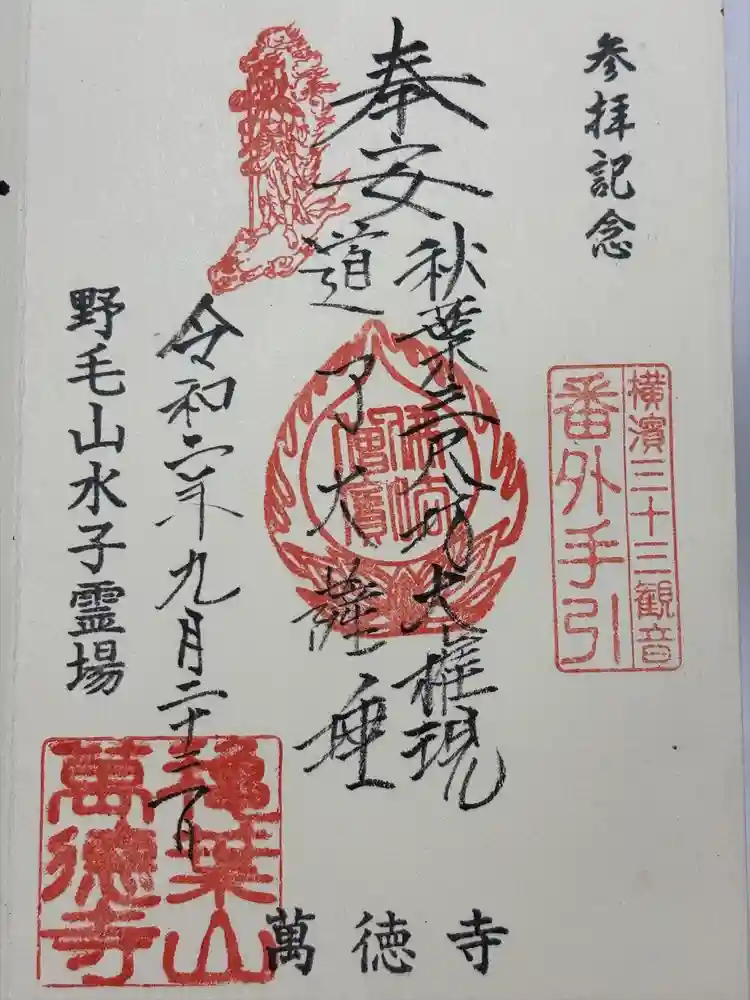 参拝記念
横濱三十三観音
番外手引
奉安
秋葉三尺坊大権現
道了大薩埵
令和二年九月二十三日
野毛山水子霊場
萬徳寺
葉山
萬徳寺